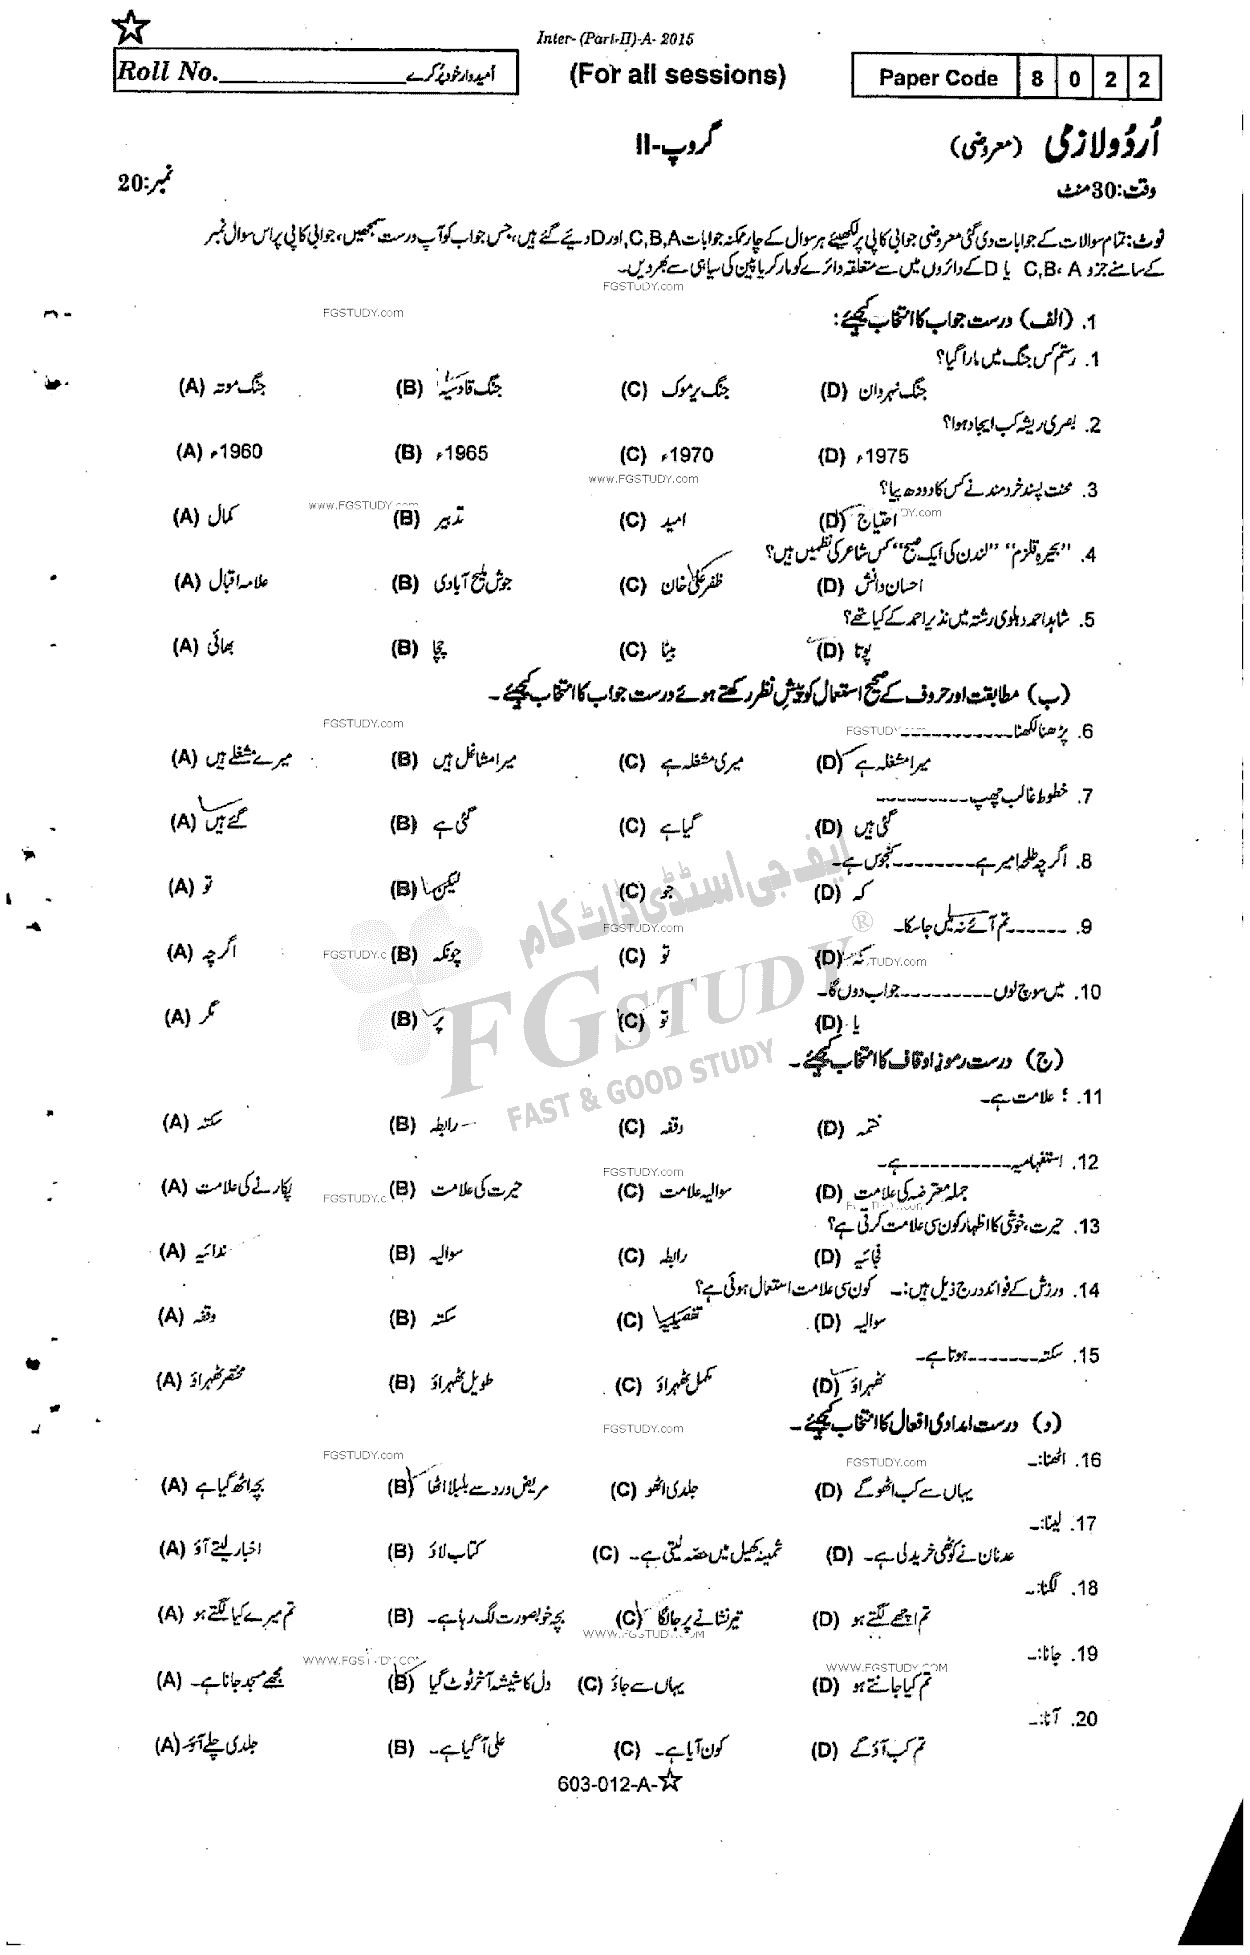 Inter- (Part-II)-A- 2015
Roll No.____________ امیدوار خود پُر کرے (For all sessions) Paper Code 8 0 2 2
اُردو لازمی (معروضی) گروپ-II
وقت:30 منٹ نمبر:20
نوٹ: تمام سوالات کے جوابات دی گئی معروضی جوابی کاپی پر لکھیئے ہر سوال کے چار ممکنہ جوابات C,B,A,اور D دیئے گئے ہیں، جس جواب کو آپ درست سمجھیں، جوابی کاپی پر اس سوال نمبر
کے سامنے جزو C,B، A یا D کے دائروں میں سے متعلقہ دائرے کو مارکر یا پین کی سیاہی سے بھر دیں۔
FGSTUDY.com
FGSTUDY.com
1. (الف) درست جواب کا انتخاب کیجئے:
1. رستم کس جنگ میں مارا گیا؟
(A) جنگ موتہ (B) جنگ قادسیہ (C) جنگ یرموک (D) جنگ نہروان
2. بصری ریشہ کب ایجاد ہوا؟
(A) 1960ء (B) 1965ء (C) 1970ء (D) 1975ء
www.FGSTUDY.com
3. محنت پسند خردمند نے کس کا دودھ پیا؟
www.FGSTUDY.com
(A) کمال (B) تدبیر (C) امید (D) احتیاج
4. "بحیرہ قلزم" "لندن کی ایک صبح" کس شاعر کی نظمیں ہیں؟
(A) علامہ اقبال (B) جوش ملیح آبادی (C) ظفر علی خان (D) احسان دانش
5. شاہد احمد دہلوی رشتہ میں نذیر احمد کے کیا تھے؟
(A) بھائی (B) چچا (C) بیٹا (D) پوتا
(ب) مطابقت اور حروف کے صحیح استعمال کو پیشِ نظر رکھتے ہوئے درست جواب کا انتخاب کیجئے۔
FGSTUDY.com
6. پڑھنا لکھنا------------
(A) میرے مشغلے ہیں (B) میرا مشاغل ہیں (C) میری مشغلہ ہے (D) میرا مشغلہ ہے
7. خطوط غالب چھپ---------
(A) گئے ہیں (B) گئی ہے (C) گیا ہے (D) گئی ہیں
8. اگرچہ طلحہ امیر ہے--------کنجوس ہے۔
(A) تو (B) لیکن (C) جو (D) کہ
9. ------تم آئے نہ میں جا سکا۔
FGSTUDY.com
(A) اگرچہ (B) چونکہ (C) تو (D) نہ
10. میں سوچ لوں----------جواب دوں گا۔
(A) مگر (B) پر (C) تو (D) یا
ایف جی اسٹڈی ڈاٹ کام
FGSTUDY ®
FAST & GOOD STUDY
(ج) درست رموز اوقاف کا انتخاب کیجئے۔
11. ؛ علامت ہے۔
(A) سکتہ (B) رابطہ (C) وقفہ (D) ختمہ
12. استفہامیہ-----------ہے۔
FGSTUDY.com
(A) پکارنے کی علامت (B) حیرت کی علامت (C) سوالیہ علامت (D) جملہ معترضہ کی علامت
13. حیرت، خوشی کا اظہار کون سی علامت کرتی ہے؟
(A) ندائیہ (B) سوالیہ (C) رابطہ (D) فجائیہ
14. ورزش کے فوائد درج ذیل ہیں:۔ کون سی علامت استعمال ہوئی ہے؟
(A) وقفہ (B) سکتہ (C) تفصیلیہ (D) سوالیہ
15. سکتہ-------ہوتا ہے۔
(A) مختصر ٹھہراؤ (B) طویل ٹھہراؤ (C) مکمل ٹھہراؤ (D) ٹھہراؤ
(د) درست امدادی افعال کا انتخاب کیجئے۔
FGSTUDY.com
FGSTUDY.com
FGSTUDY.com
16. اٹھنا:۔
(A) بچہ اٹھ گیا ہے (B) مریض درد سے بلبلا اٹھا (C) جلدی اٹھو (D) یہاں سے کب اٹھو گے
17. لینا:۔
(A) اخبار لیتے آؤ (B) کتاب لاؤ (C) ثمینہ کھیل میں حصہ لیتی ہے۔ (D) عدنان نے کوٹھی خرید لی ہے۔
18. لگنا:۔
(A) تم میرے کیا لگتے ہو (B) بچہ خوبصورت لگ رہا ہے۔ (C) تیر نشانے پر جا لگا (D) تم اچھے لگتے ہو
WWW.FGSTUDY.COM
19. جانا:۔
WWW.FGSTUDY.COM
WWW.FGSTUDY.COM
(A) مجھے مسجد جانا ہے۔ (B) دل کا شیشہ آخر ٹوٹ گیا (C) یہاں سے جاؤ (D) تم کیا جانتے ہو
20. آنا:۔
(A) جلدی چلے آؤ (B) علی آ گیا ہے۔ (C) کون آیا ہے۔ (D) تم کب آؤ گے
603-012-A-☆